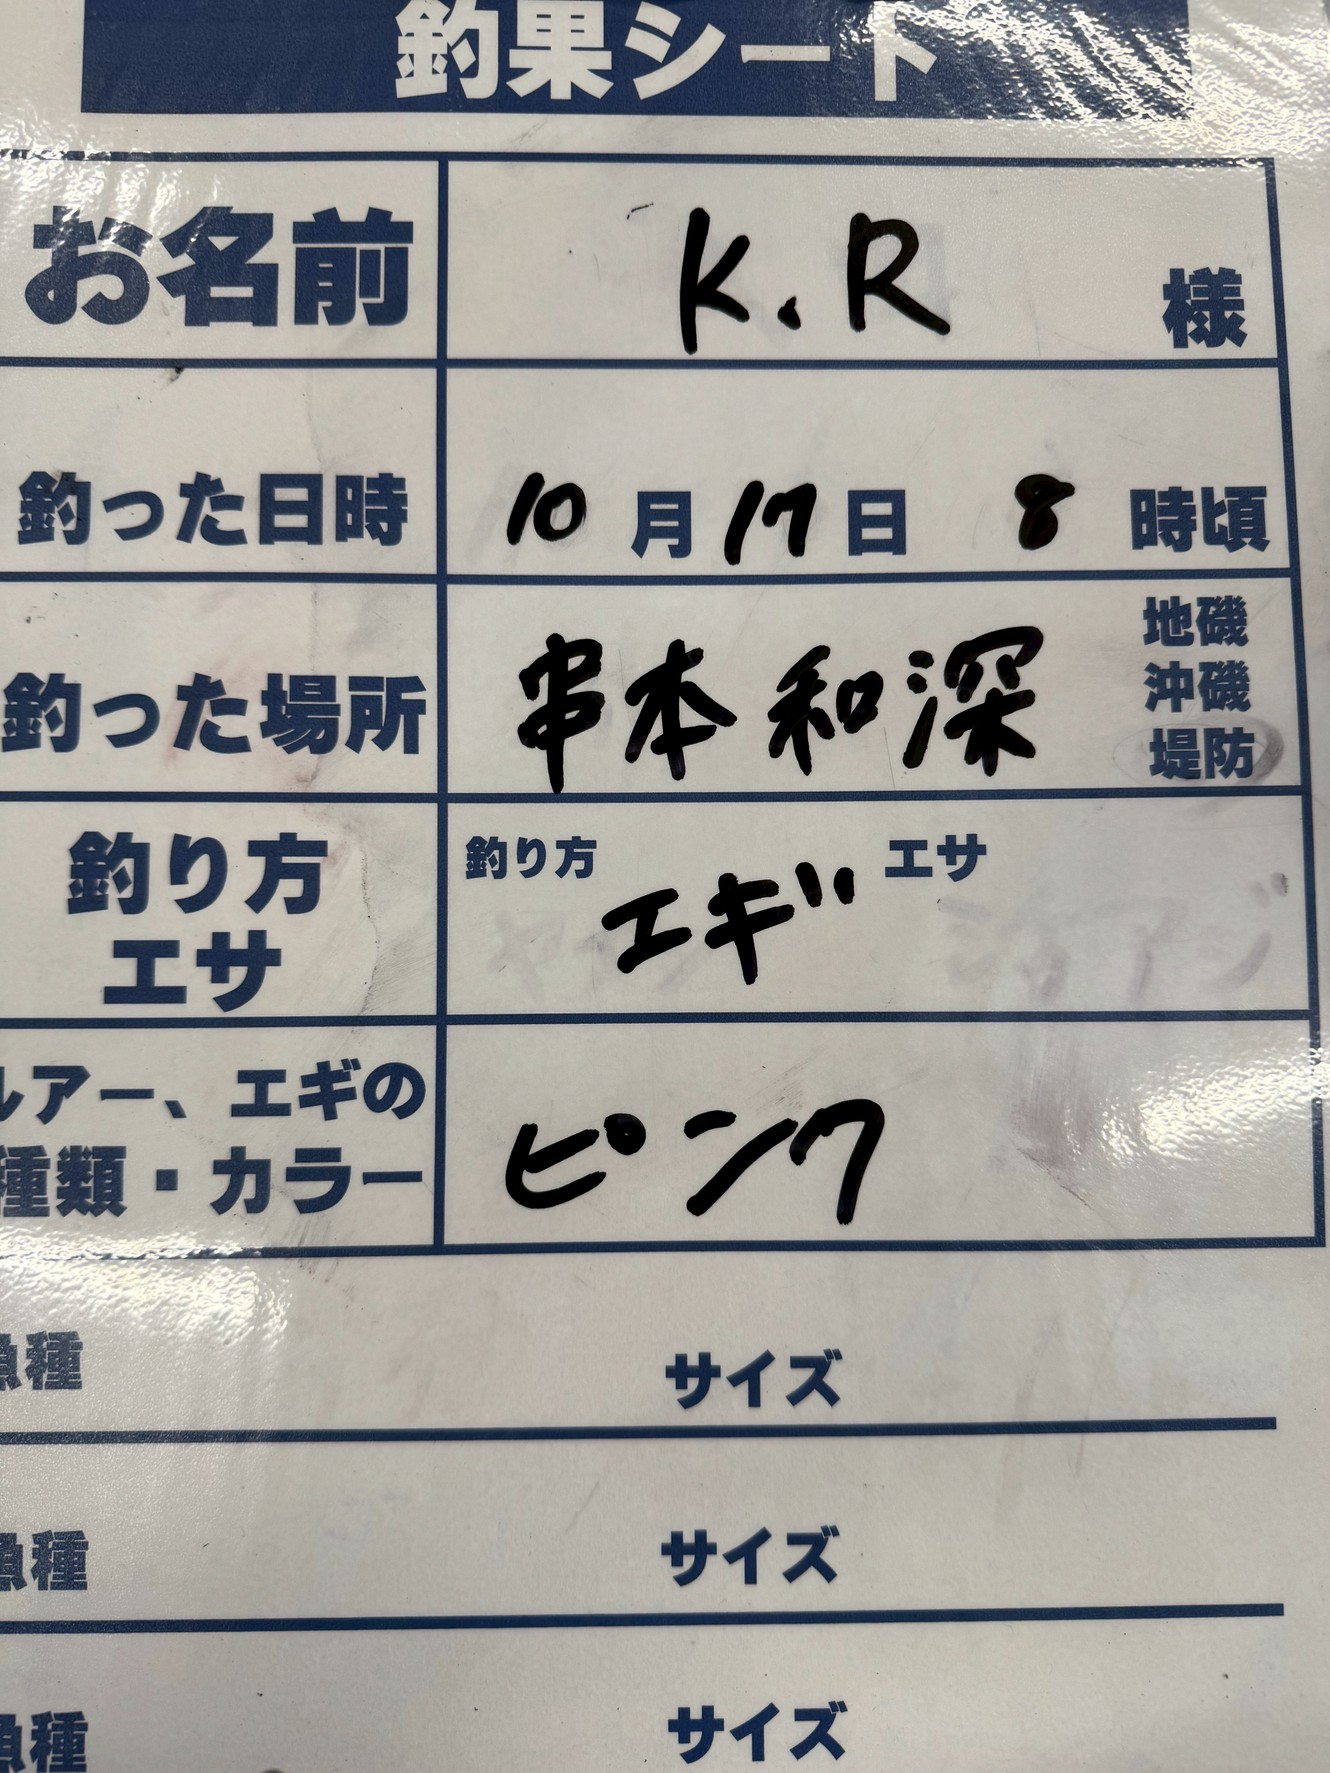 釣果シート
お名前 K.R 様
釣った日時 10月17日 8時頃
釣った場所 串本 和深 地磯
沖磯
堤防
釣り方 エサ
釣り方 エギ エサ
ルアー、エギの
種類・カラー
ピンク
魚種 サイズ
魚種 サイズ
魚種 サイズ